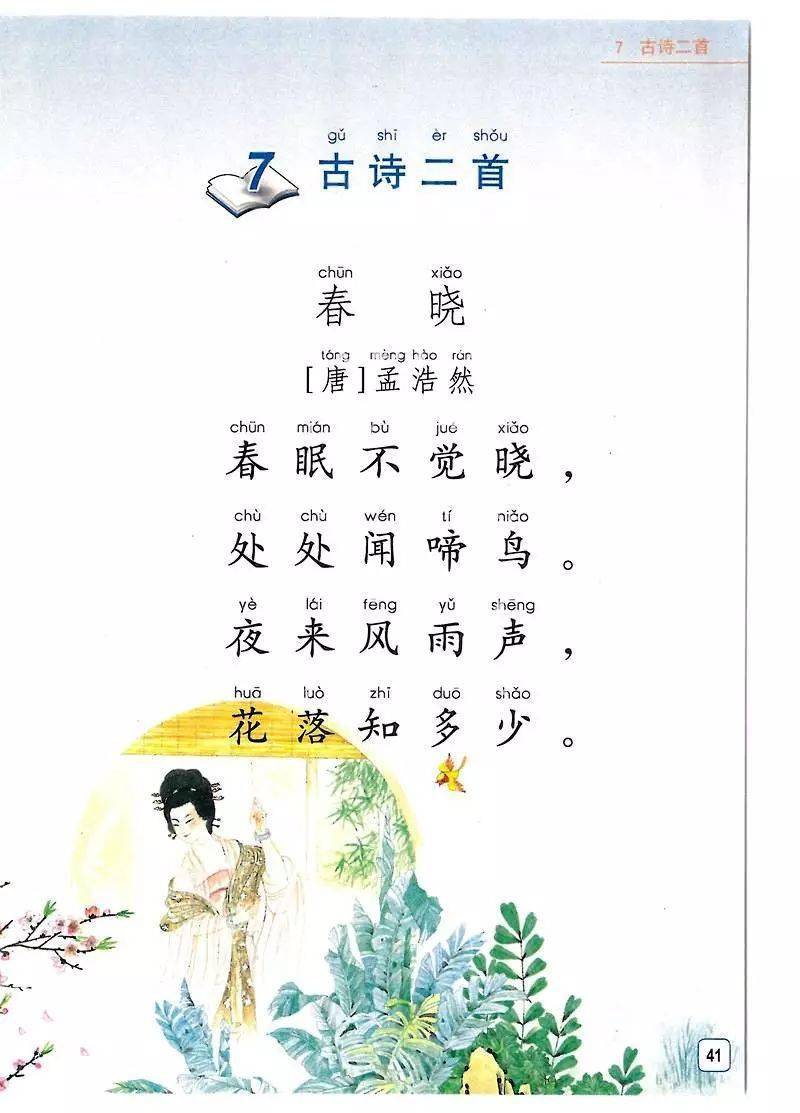 7 古诗二首
gǔ shī èr shǒu
7 古诗二首
chūn xiǎo
春 晓
táng mèng hào rán
[唐]孟浩然
chūn mián bù jué xiǎo
春眠不觉晓，
chù chù wén tí niǎo
处处闻啼鸟。
yè lái fēng yǔ shēng
夜来风雨声，
huā luò zhī duō shǎo
花落知多少。
41